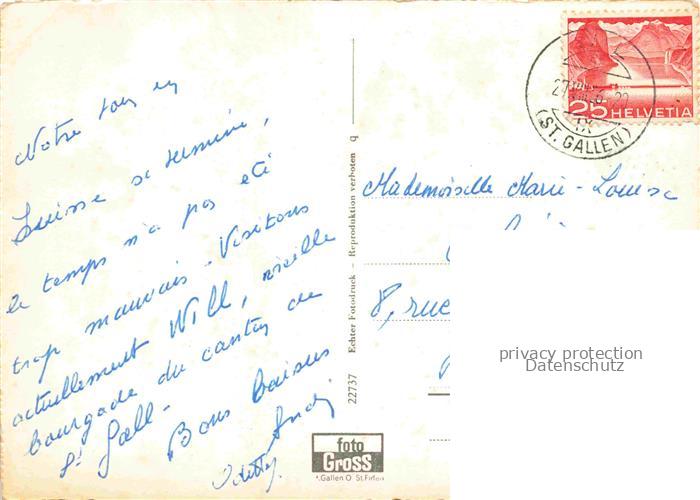 Notre tour en
Suisse se termine,
le temps n'a pas été
trop mauvais. Visitons
actuellement Will, vieille
bourgade du canton de
St Gall-
Bons baisers
Andy
Echter Fotodruck - Reproduktion verboten q
22737
foto
Gross
St. Gallen
25 HELVETIA
(ST. GALLEN)
Mademoiselle Marie-Louise
8, rue
privacy protection
Datenschutz